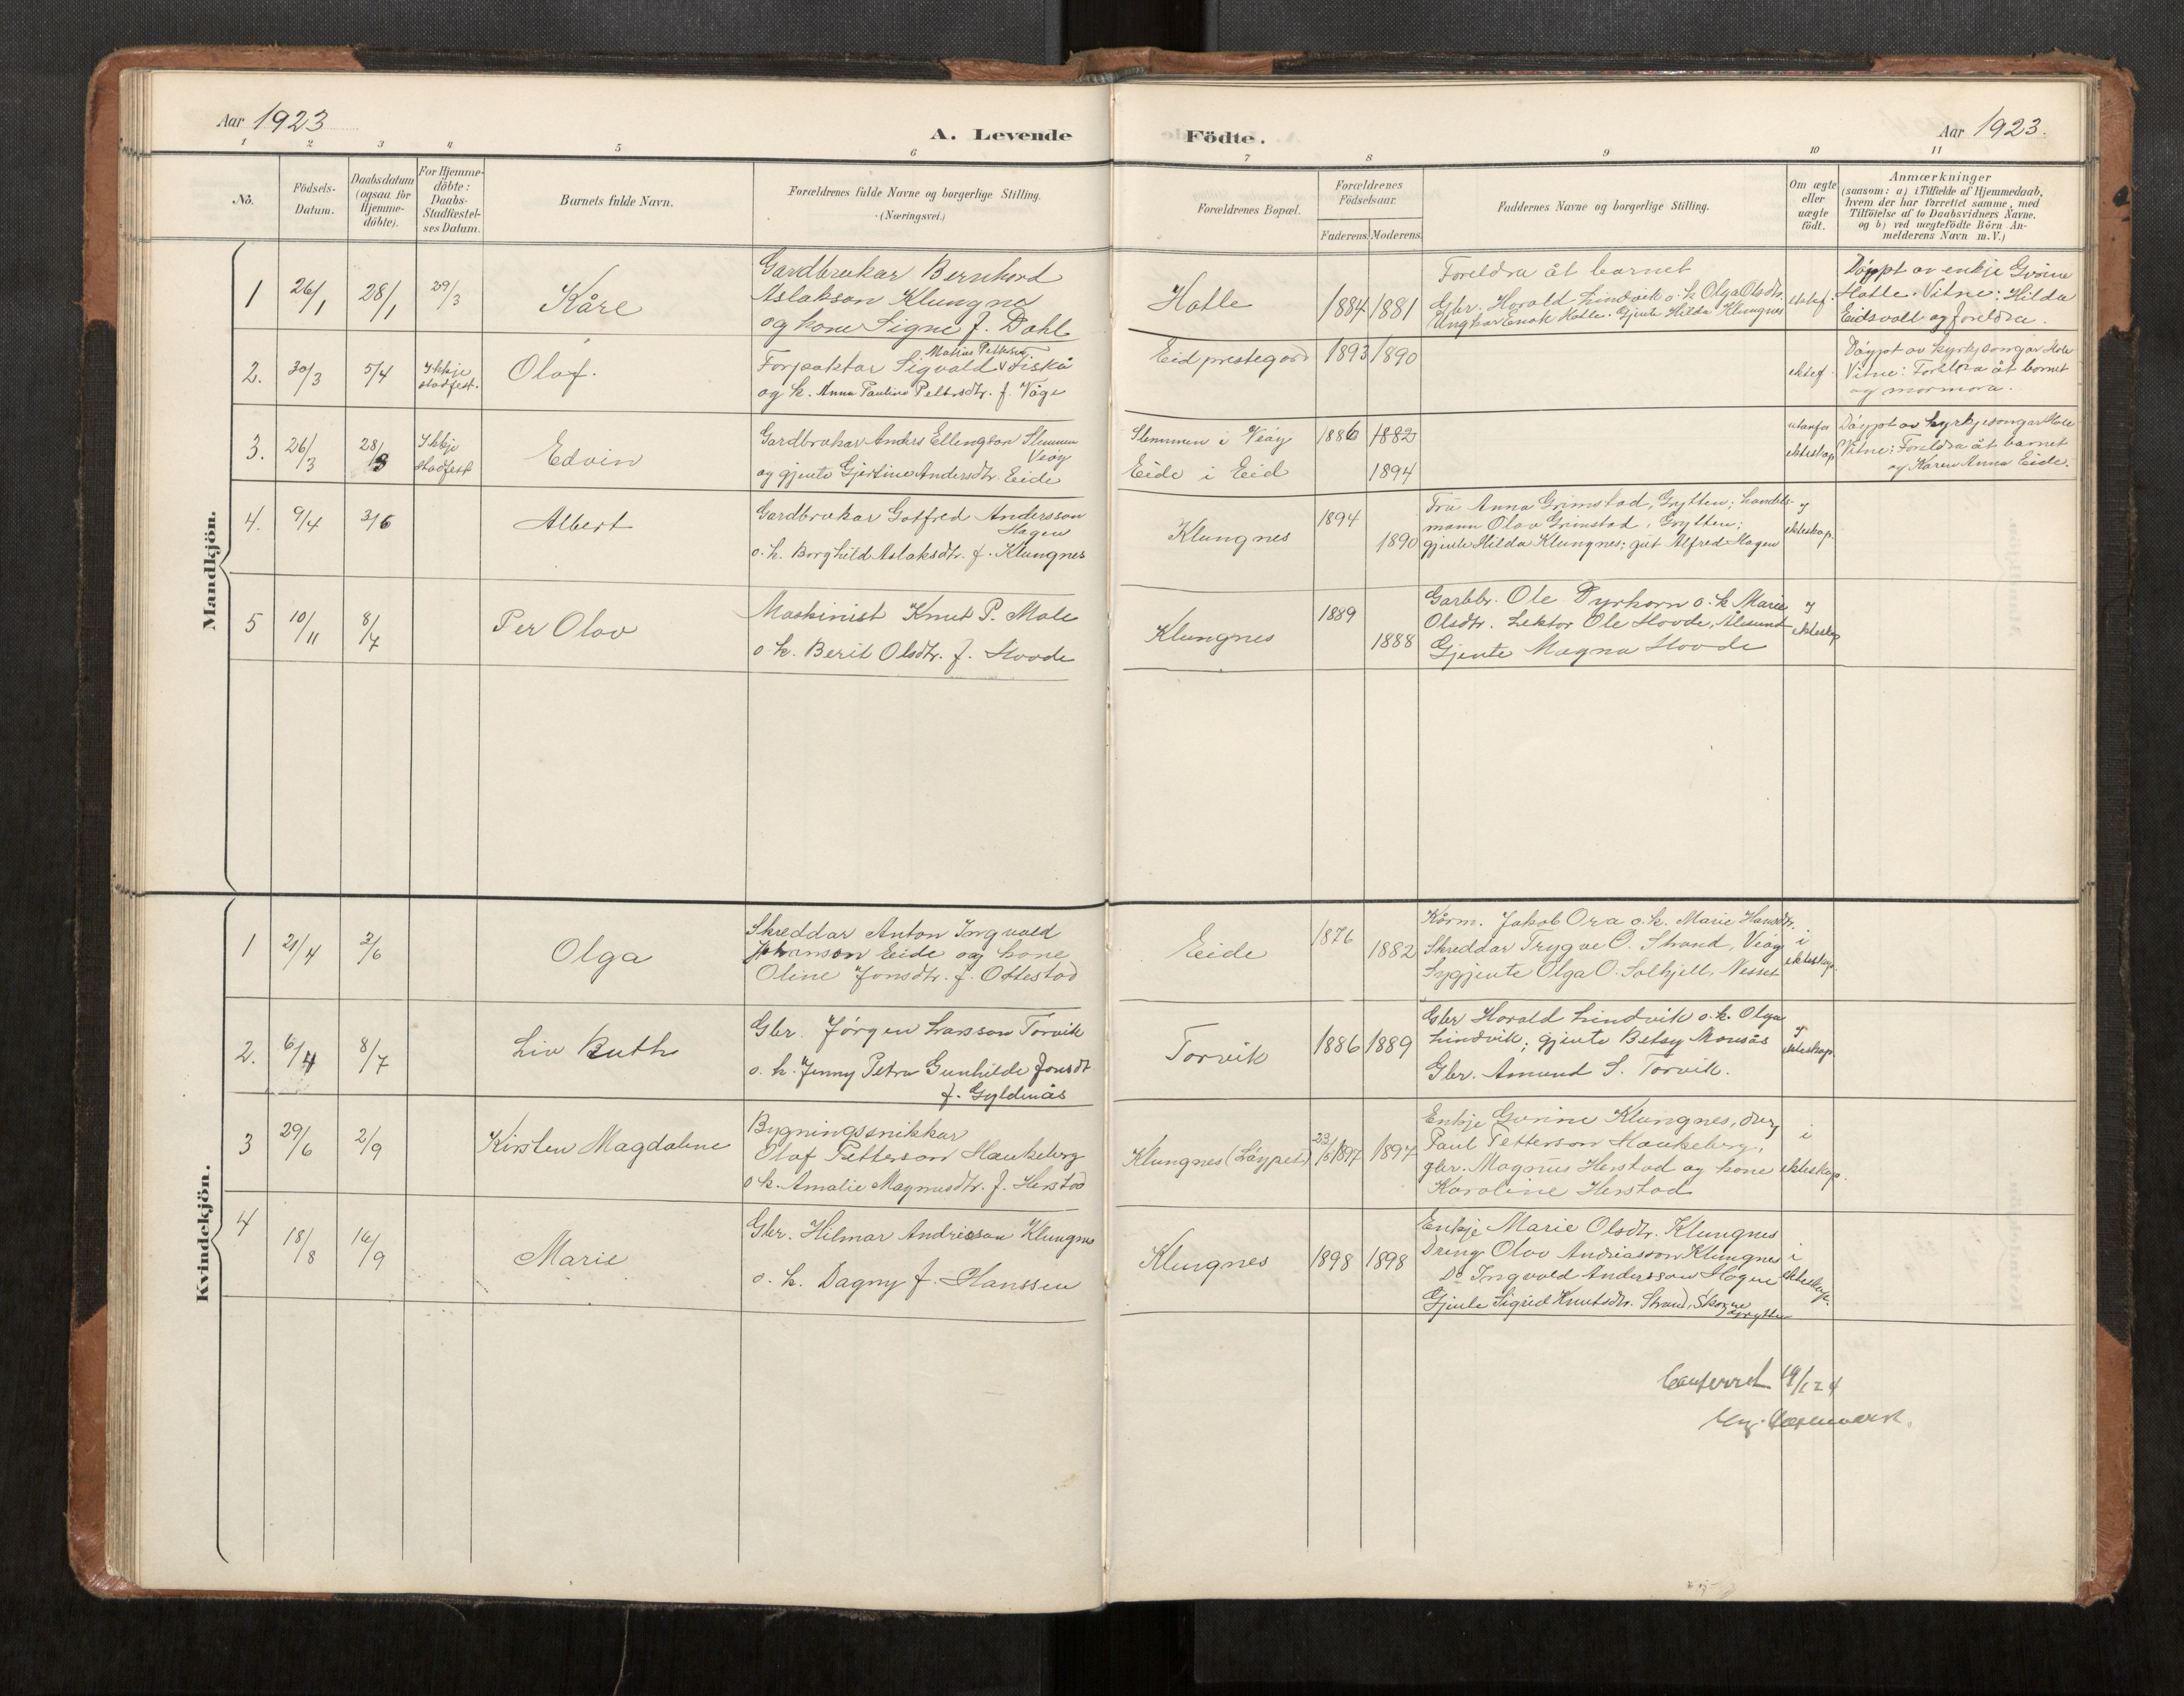 Aar 1923
A. Levende Födte.
Aar 1923.
1 2 3 4 5 6 7 8 9 10 11
No.
Födsels-
Datum.
Daabsdatum
(ogsaa for
Hjemme-
döbte).
For Hjemme-
döbte:
Daabs-
Stadfæstel-
ses Datum.
Barnets fulde Navn.
Forældrenes fulde Navne og borgerlige Stilling.
(Næringsvei.)
Forældrenes Bopæl.
Forældrenes
Födselsaar.
Faderens. Moderens.
Faddernes Navne og borgerlige Stilling.
Om ægte
eller
uægte
födt.
Anmærkninger
(saasom: a) i Tilfælde af Hjemmedaab,
hvem der har forrettet samme, med
Tilföielse af to Daabsvidners Navne.
og b) ved uægtefödte Börn An-
melderens Navn m.V.)
Mandkjön.
1 26/1 28/1 29/3 Kåre
Gardbrukar Bernhard
Aslakson Klungnes
og kone Signe f. Dahl
Hatle 1884 1881
Foreldra åt barnet
Gbr. Harald Lindvik o. k. Olga Olsdtr.
Ungkar Enok Hatle. Gjente Hilda Klungnes
ektef.
Döypt av enkje Gurine
Hatle. Vitne: Hilda
Eidsvoll og foreldra.
2. 30/3 5/4 Ikkje
stadfest.
Olaf.
Matias Petterson
Forpaktar Sigvald v Fiskå
og k. Anna Pauline Pettersdtr. f. Våge
Eid prestegard 1893 1890
ektef.
Döypt av kyrkjesongar Hole
Vitne: Foreldra åt barnet
og mormora.
3. 26/3 28/3 Ikkje
stadfest
Edvin
Gardbrukar Anders Ellingson Stemmen
Veøy
og gjente Gjertine Andersdtr. Eide
Stemmen i Veöy 1886 1882
Eide i Eid 1894
utanfor
ekteskap
Döypt av kyrkjesongar Hole
Vitne: Foreldra åt barnet
og Karen Anna Eide.
4. 9/4 3/6 Albert
Gardbrukar Gotfred Andersson
Hagen
o. k. Borghild Aslaksdtr. f. Klungnes
Klungnes 1894
1890
Fru Anna Grimstad, Grytten; handels-
mann Olav Grimstad, Grytten;
gjente Hilda Klungnes; gut Alfred Hagen
i
ekteskap.
5 10/11 8/7 Per Olav
Maskinist Knut P. Mole
o. k. Berit Olsdtr. f. Hovde
Klungnes 1889
1888
Garbbr. Ole Dyrkorn o. k. Marie
Olsdtr. Lektor Ole Hovde, Ålesund
Gjente Magna Hovde
i
ekteskap
Kvindekjön.
1 21/4 3/6 Olga
Skreddar Anton Ingvald
Johanson Eide og kone
Oline Jonsdtr. f. Ottestad
Eide 1876
1882
Kårm. Jakob Ora o. k. Marie Hansdtr.
Skreddar Trygve O. Strand, Veöy
Sygjente Olga O. Solhjell, Nesset
i
ekteskap.
2. 6/4 8/7 Liv Ruth
Gbr. Jørgen Larsson Torvik
o. k. Jenny Petra Gunhilde Jonsdt
f. Gyldenås
Torvik 1886 1889
Gbr Harald Lindvik o. k. Olga
Lindvik; gjente Betsy Monsås
Gbr. Amund S. Torvik.
i
ekteskap.
3 29/6 2/9 Kirsten Magdalene
Bygningssnikkar
Olaf Petterson Haukeberg
o k. Amalie Magnusdtr. f. Herstad
Klungnes (Löypet) 23/5 1897 1897
Enkje Gurine Klungnes,
Paul Petterson Haukeberg,
gbr. Magnus Herstad og kone
Karoline Herstad
i
ekteskap.
4 18/8 16/9 Marie
Gbr. Hilmar Andreasson Klungnes
o. k. Dagny f. Hanssen
Klungnes 1898 1898
Enkje Marie Olsdtr. Klungnes
Dreng Olav Andreasson Klungnes
Do Ingvald Andersson Hagen
Gjente Sigrid Knutsdtr. Strand, Grytten
i
ekteskap.
Conferert 19/1 24